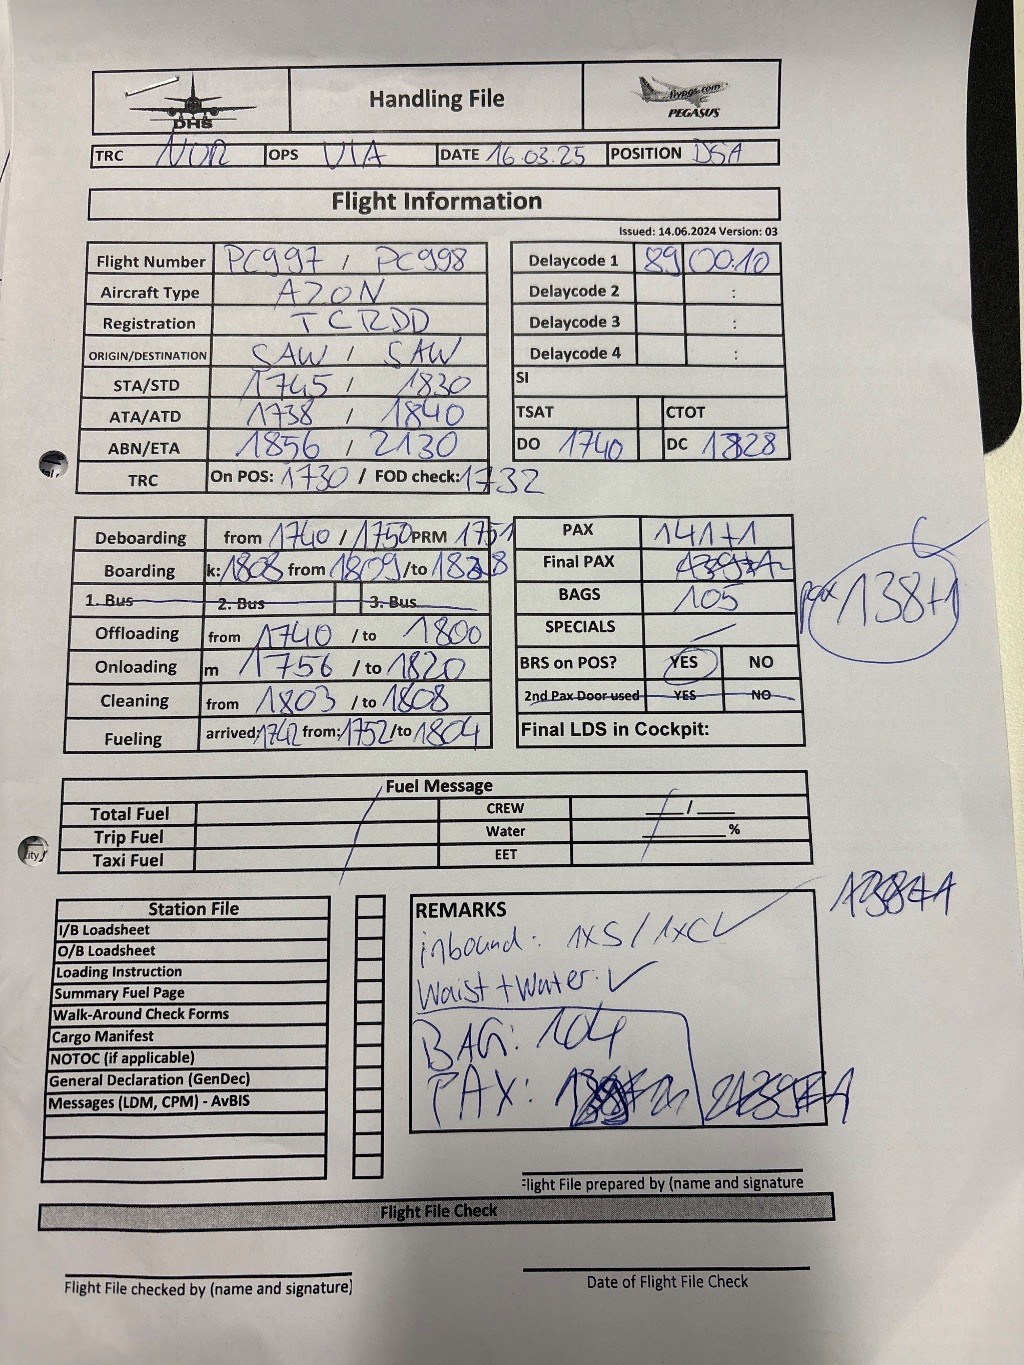 DHS
Handling File
flypgs.com
PEGASUS
TRC NUR OPS VIA DATE 16.03.25 POSITION D5A
Flight Information
Issued: 14.06.2024 Version: 03
Flight Number PC997 / PC998
Aircraft Type A20N
Registration TCRDD
ORIGIN/DESTINATION SAW / SAW
STA/STD 1745 / 1830
ATA/ATD 1738 / 1840
ABN/ETA 1856 / 2130
TRC On POS: 1730 / FOD check: 1732
Delaycode 1 89 00:10
Delaycode 2 :
Delaycode 3 :
Delaycode 4 :
SI
TSAT CTOT
DO 1740 DC 1828
Deboarding from 1740 / 1750 PRM 1751
Boarding k: 1808 from 1809 /to 1828
1. Bus 2. Bus 3. Bus
Offloading from 1740 /to 1800
Onloading m 1756 /to 1820
Cleaning from 1803 /to 1808
Fueling arrived: 1742 from: 1752 /to 1804
PAX 141+1
Final PAX
pax 138+1
BAGS 105
SPECIALS
BRS on POS? YES NO
2nd Pax Door used YES NO
Final LDS in Cockpit:
Fuel Message
Total Fuel CREW /
Trip Fuel Water %
Taxi Fuel EET
Station File
I/B Loadsheet
O/B Loadsheet
Loading Instruction
Summary Fuel Page
Walk-Around Check Forms
Cargo Manifest
NOTOC (if applicable)
General Declaration (GenDec)
Messages (LDM, CPM) - AvBIS
REMARKS
inbound: 1xS / 1xCL
Waist + Water: ✓
BAG: 104
PAX:
Flight File prepared by (name and signature
Flight File Check
Flight File checked by (name and signature)
Date of Flight File Check